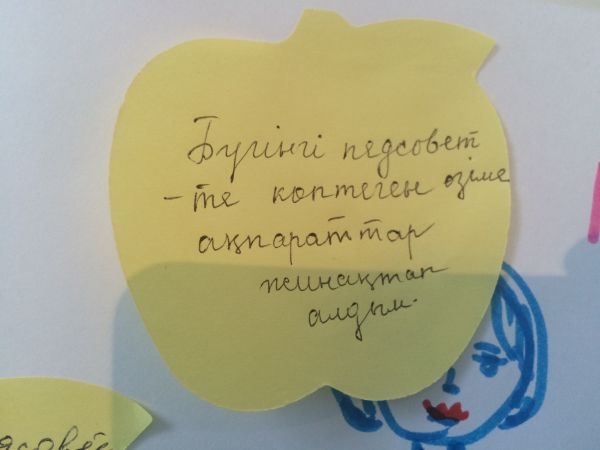 Бүгінгі педсовет
-те көптеген өзіме
ақпараттар
жинақтап
алдым.